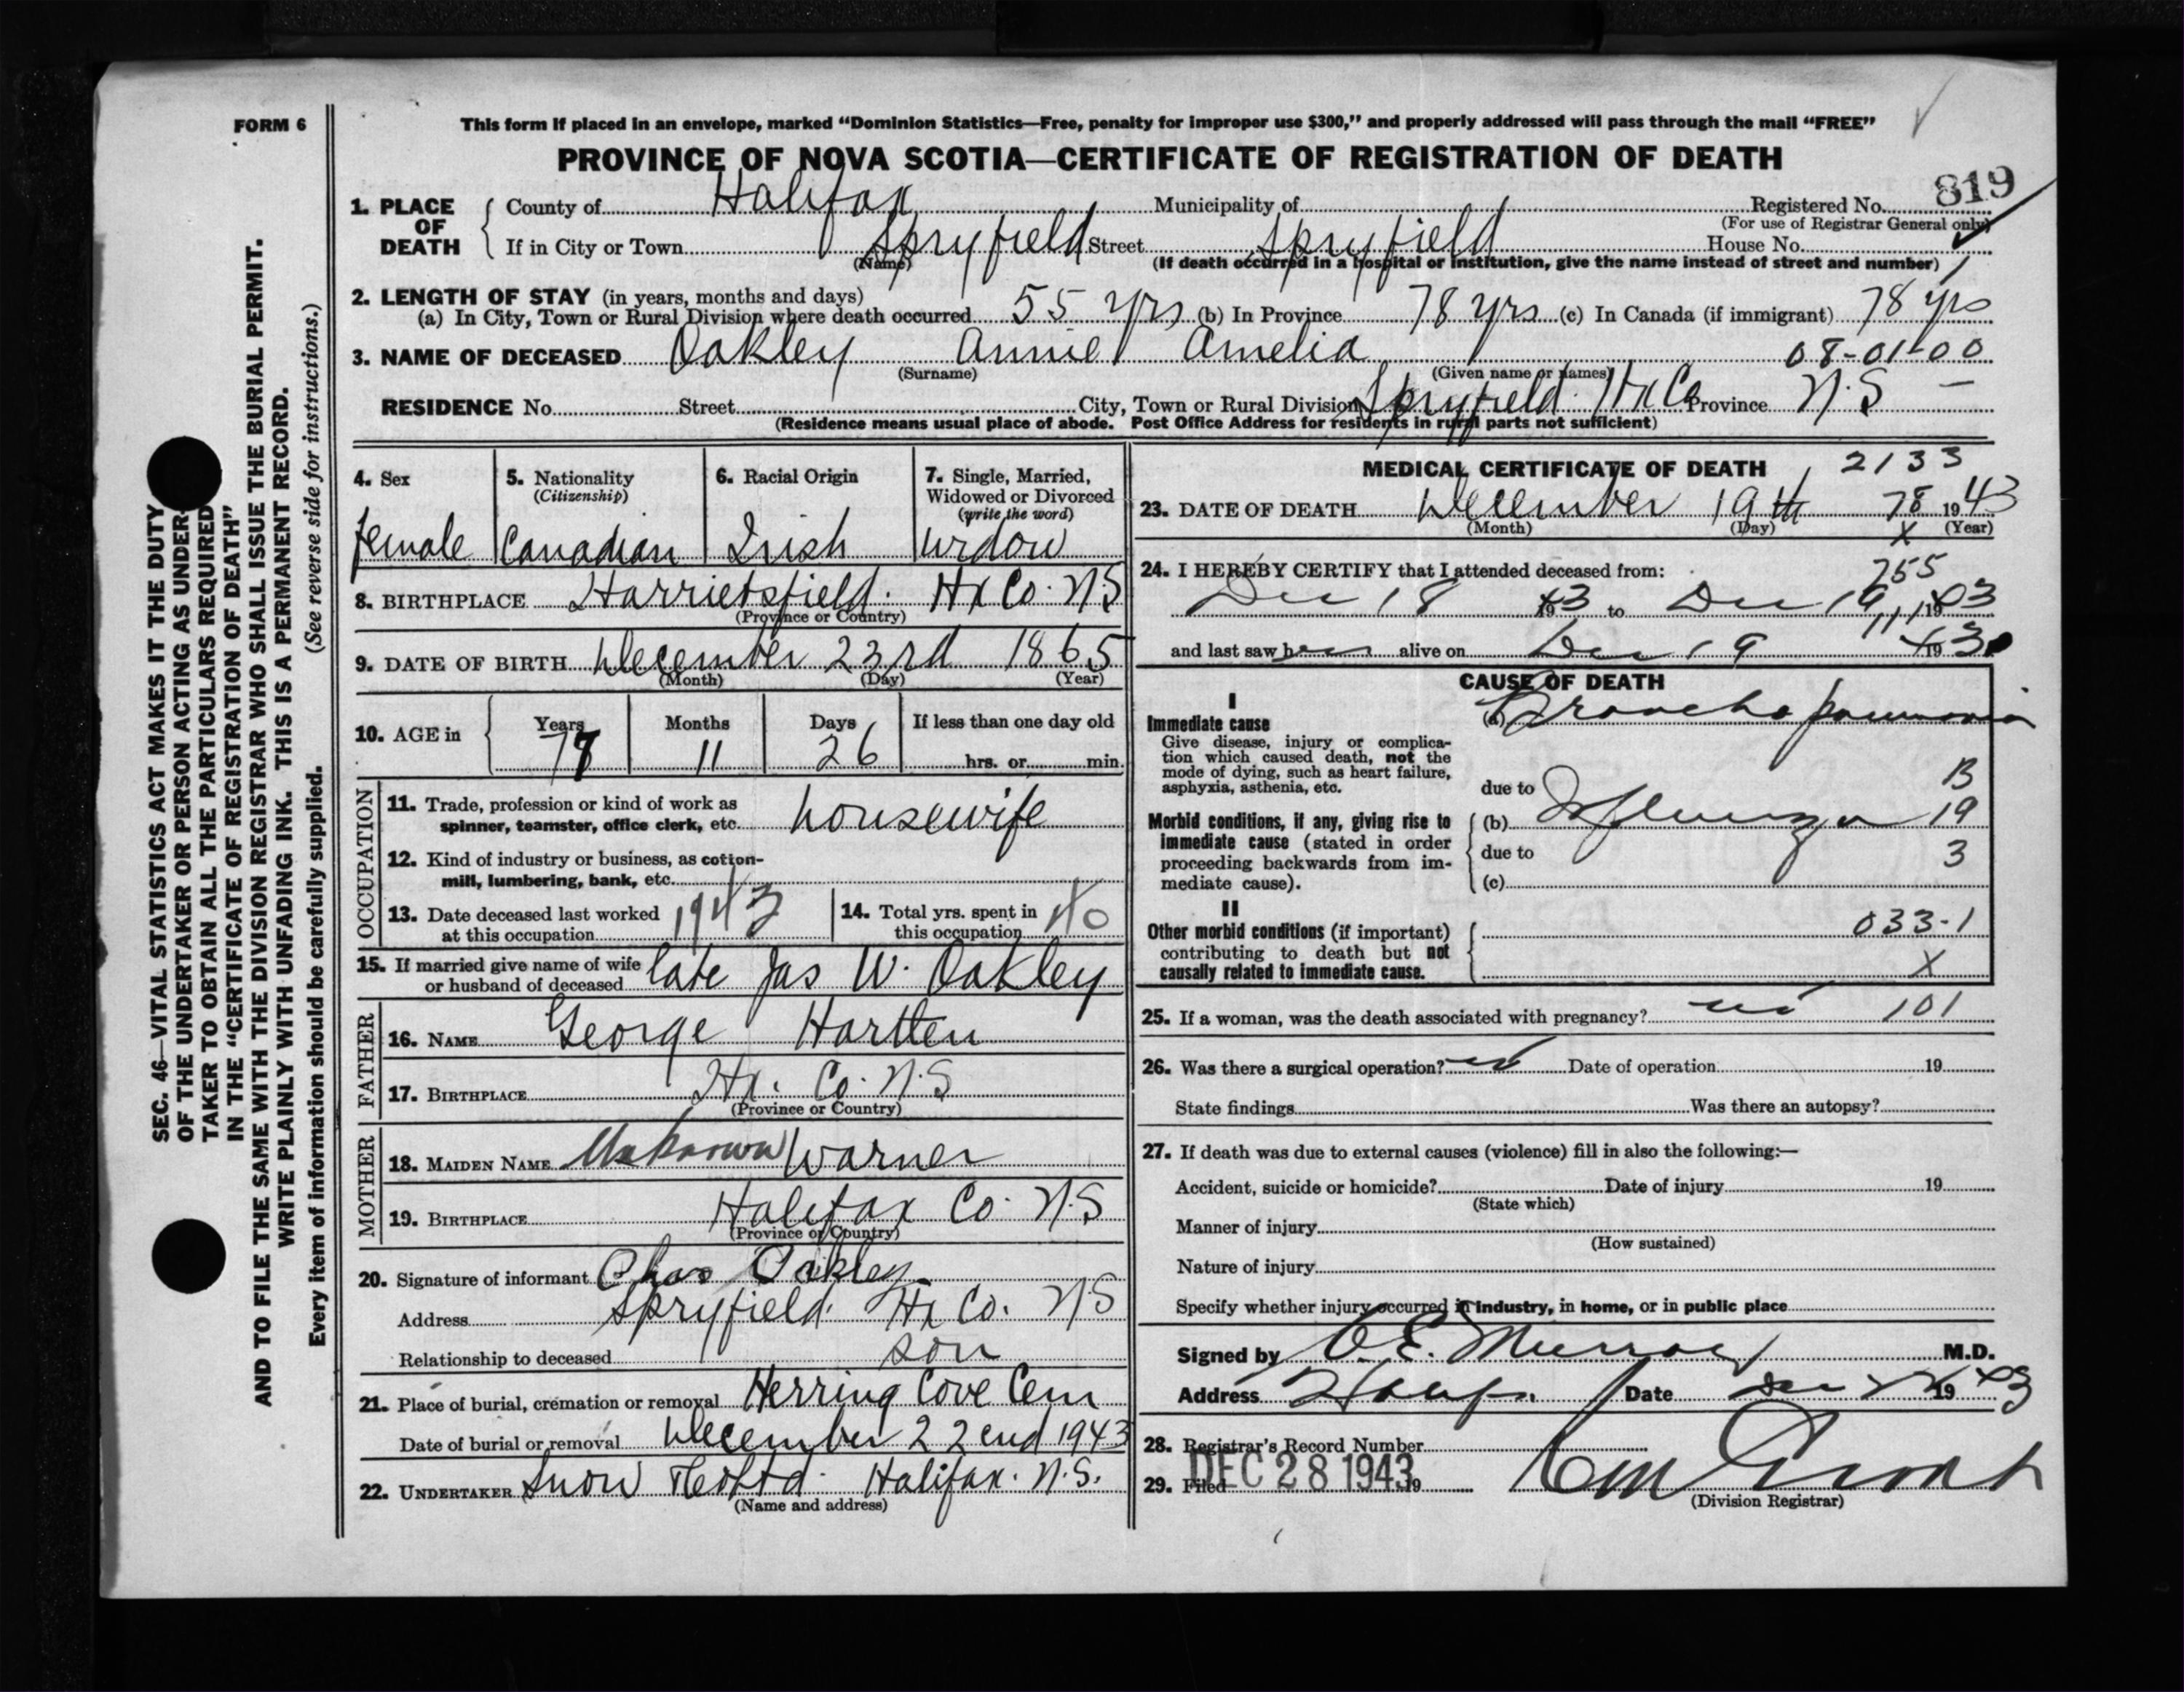 FORM 6
This form if placed in an envelope, marked “Dominion Statistics—Free, penalty for improper use $300,” and properly addressed will pass through the mail “FREE”
PROVINCE OF NOVA SCOTIA—CERTIFICATE OF REGISTRATION OF DEATH
819
1. PLACE OF DEATH County of Halifax Municipality of Registered No.
(For use of Registrar General only)
If in City or Town Spryfield Street Spryfield House No.
(Name) (If death occurred in a hospital or institution, give the name instead of street and number)
2. LENGTH OF STAY (in years, months and days)
(a) In City, Town or Rural Division where death occurred 55 yrs (b) In Province 78 yrs (c) In Canada (if immigrant) 78 yrs
3. NAME OF DECEASED Oakley Annie Amelia 08-01-00
(Surname) (Given name or names)
RESIDENCE No. Street City, Town or Rural Division Spryfield Hx Co Province N.S —
(Residence means usual place of abode. Post Office Address for residents in rural parts not sufficient)
4. Sex 5. Nationality 6. Racial Origin 7. Single, Married,
(Citizenship) Widowed or Divorced
(write the word)
female Canadian Irish widow
8. BIRTHPLACE Harrietsfield. Hx Co. N.S
(Province or Country)
9. DATE OF BIRTH December 23rd 1865
(Month) (Day) (Year)
10. AGE in Years Months Days If less than one day old
77 11 26 hrs. or min.
OCCUPATION
11. Trade, profession or kind of work as
spinner, teamster, office clerk, etc. housewife
12. Kind of industry or business, as cotton-
mill, lumbering, bank, etc.
13. Date deceased last worked
at this occupation 1943
14. Total yrs. spent in
this occupation 40
15. If married give name of wife
or husband of deceased late Jas W. Oakley
FATHER
16. NAME George Hartten
17. BIRTHPLACE Hx. Co. N.S
(Province or Country)
MOTHER
18. MAIDEN NAME Unknown Warner
19. BIRTHPLACE Halifax Co. N.S
(Province or Country)
20. Signature of informant Chas Oakley
Address Spryfield. Hx Co. N.S
Relationship to deceased son
21. Place of burial, cremation or removal Herring Cove Cem
Date of burial or removal December 22end 1943
22. UNDERTAKER Snow & Co Ltd. Halifax. N.S.
(Name and address)
MEDICAL CERTIFICATE OF DEATH 2133
23. DATE OF DEATH December 19th 78 1943
(Month) (Day) X (Year)
24. I HEREBY CERTIFY that I attended deceased from: 255
Dec 18 1943 to Dec 19 1943
111
and last saw her alive on Dec 19 1943
CAUSE OF DEATH
I
Immediate cause (a) Broncho pneumonia
Give disease, injury or complica-
tion which caused death, not the
mode of dying, such as heart failure,
asphyxia, asthenia, etc.
due to B
Morbid conditions, if any, giving rise to (b) Influenza 19
immediate cause (stated in order
proceeding backwards from im- due to 3
mediate cause). (c)
II
Other morbid conditions (if important) 033-1
contributing to death but not
causally related to immediate cause. X
25. If a woman, was the death associated with pregnancy? no 101
26. Was there a surgical operation? no Date of operation 19
State findings Was there an autopsy?
27. If death was due to external causes (violence) fill in also the following:—
Accident, suicide or homicide? Date of injury 19
(State which)
Manner of injury
(How sustained)
Nature of injury
Specify whether injury occurred in industry, in home, or in public place
Signed by M.D.
Address Date Dec 1943
28. Registrar's Record Number
29. Filed DEC 28 1943 19
(Division Registrar)
SEC. 46—VITAL STATISTICS ACT MAKES IT THE DUTY
OF THE UNDERTAKER OR PERSON ACTING AS UNDER-
TAKER TO OBTAIN ALL THE PARTICULARS REQUIRED
IN THE “CERTIFICATE OF REGISTRATION OF DEATH”
AND TO FILE THE SAME WITH THE DIVISION REGISTRAR WHO SHALL ISSUE THE BURIAL PERMIT.
WRITE PLAINLY WITH UNFADING INK. THIS IS A PERMANENT RECORD.
Every item of information should be carefully supplied. (See reverse side for instructions.)